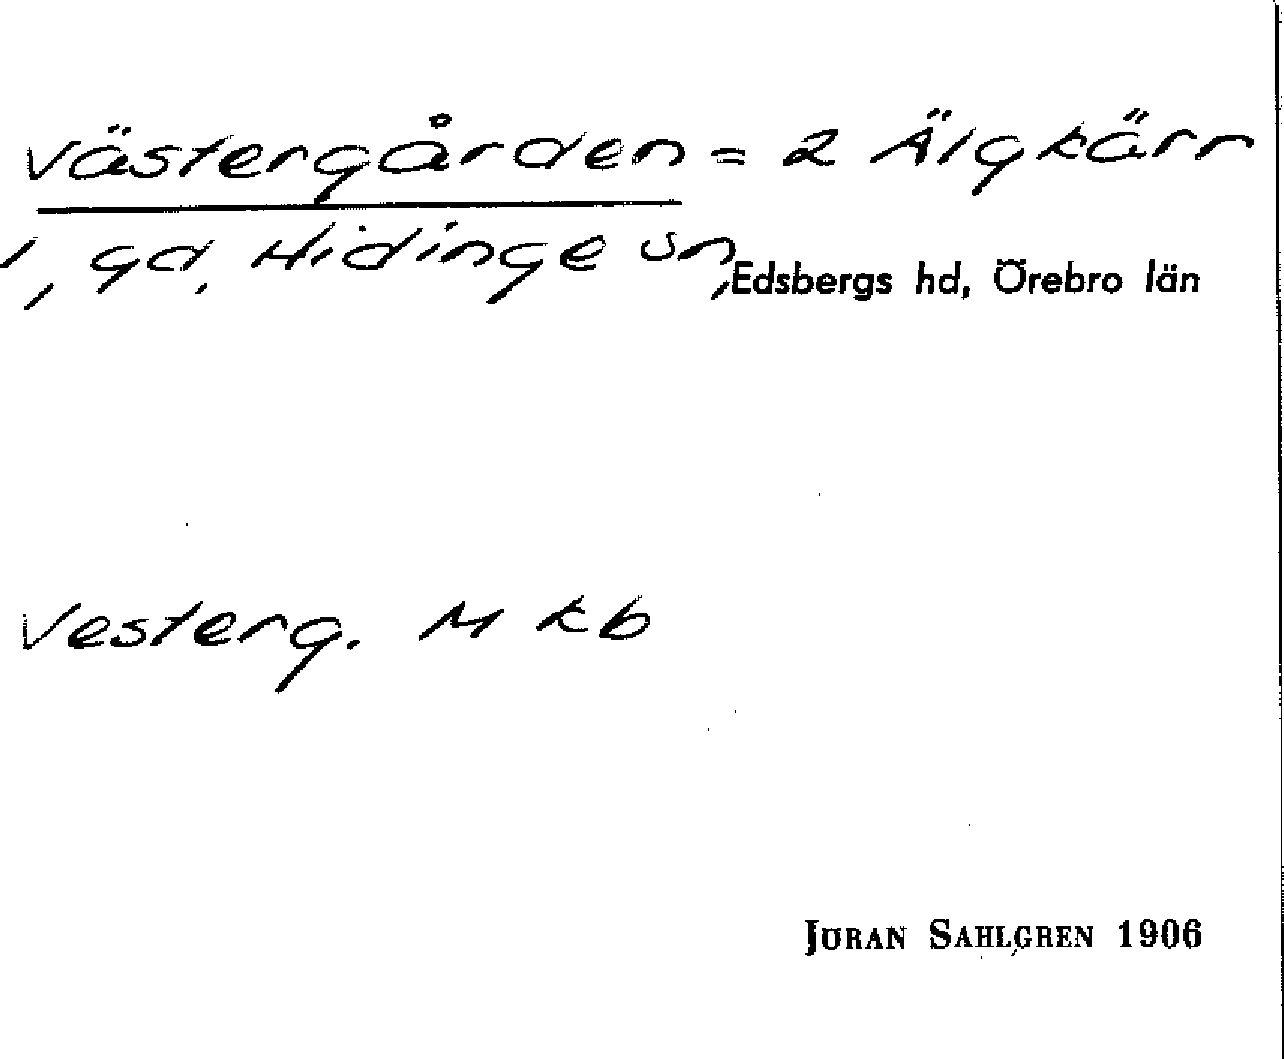 Västergården = 2 Älgkärr
1, gd, Hidinge sn, Edsbergs hd, Örebro län
Vesterg. M kb
JÖRAN SAHLGREN 1906